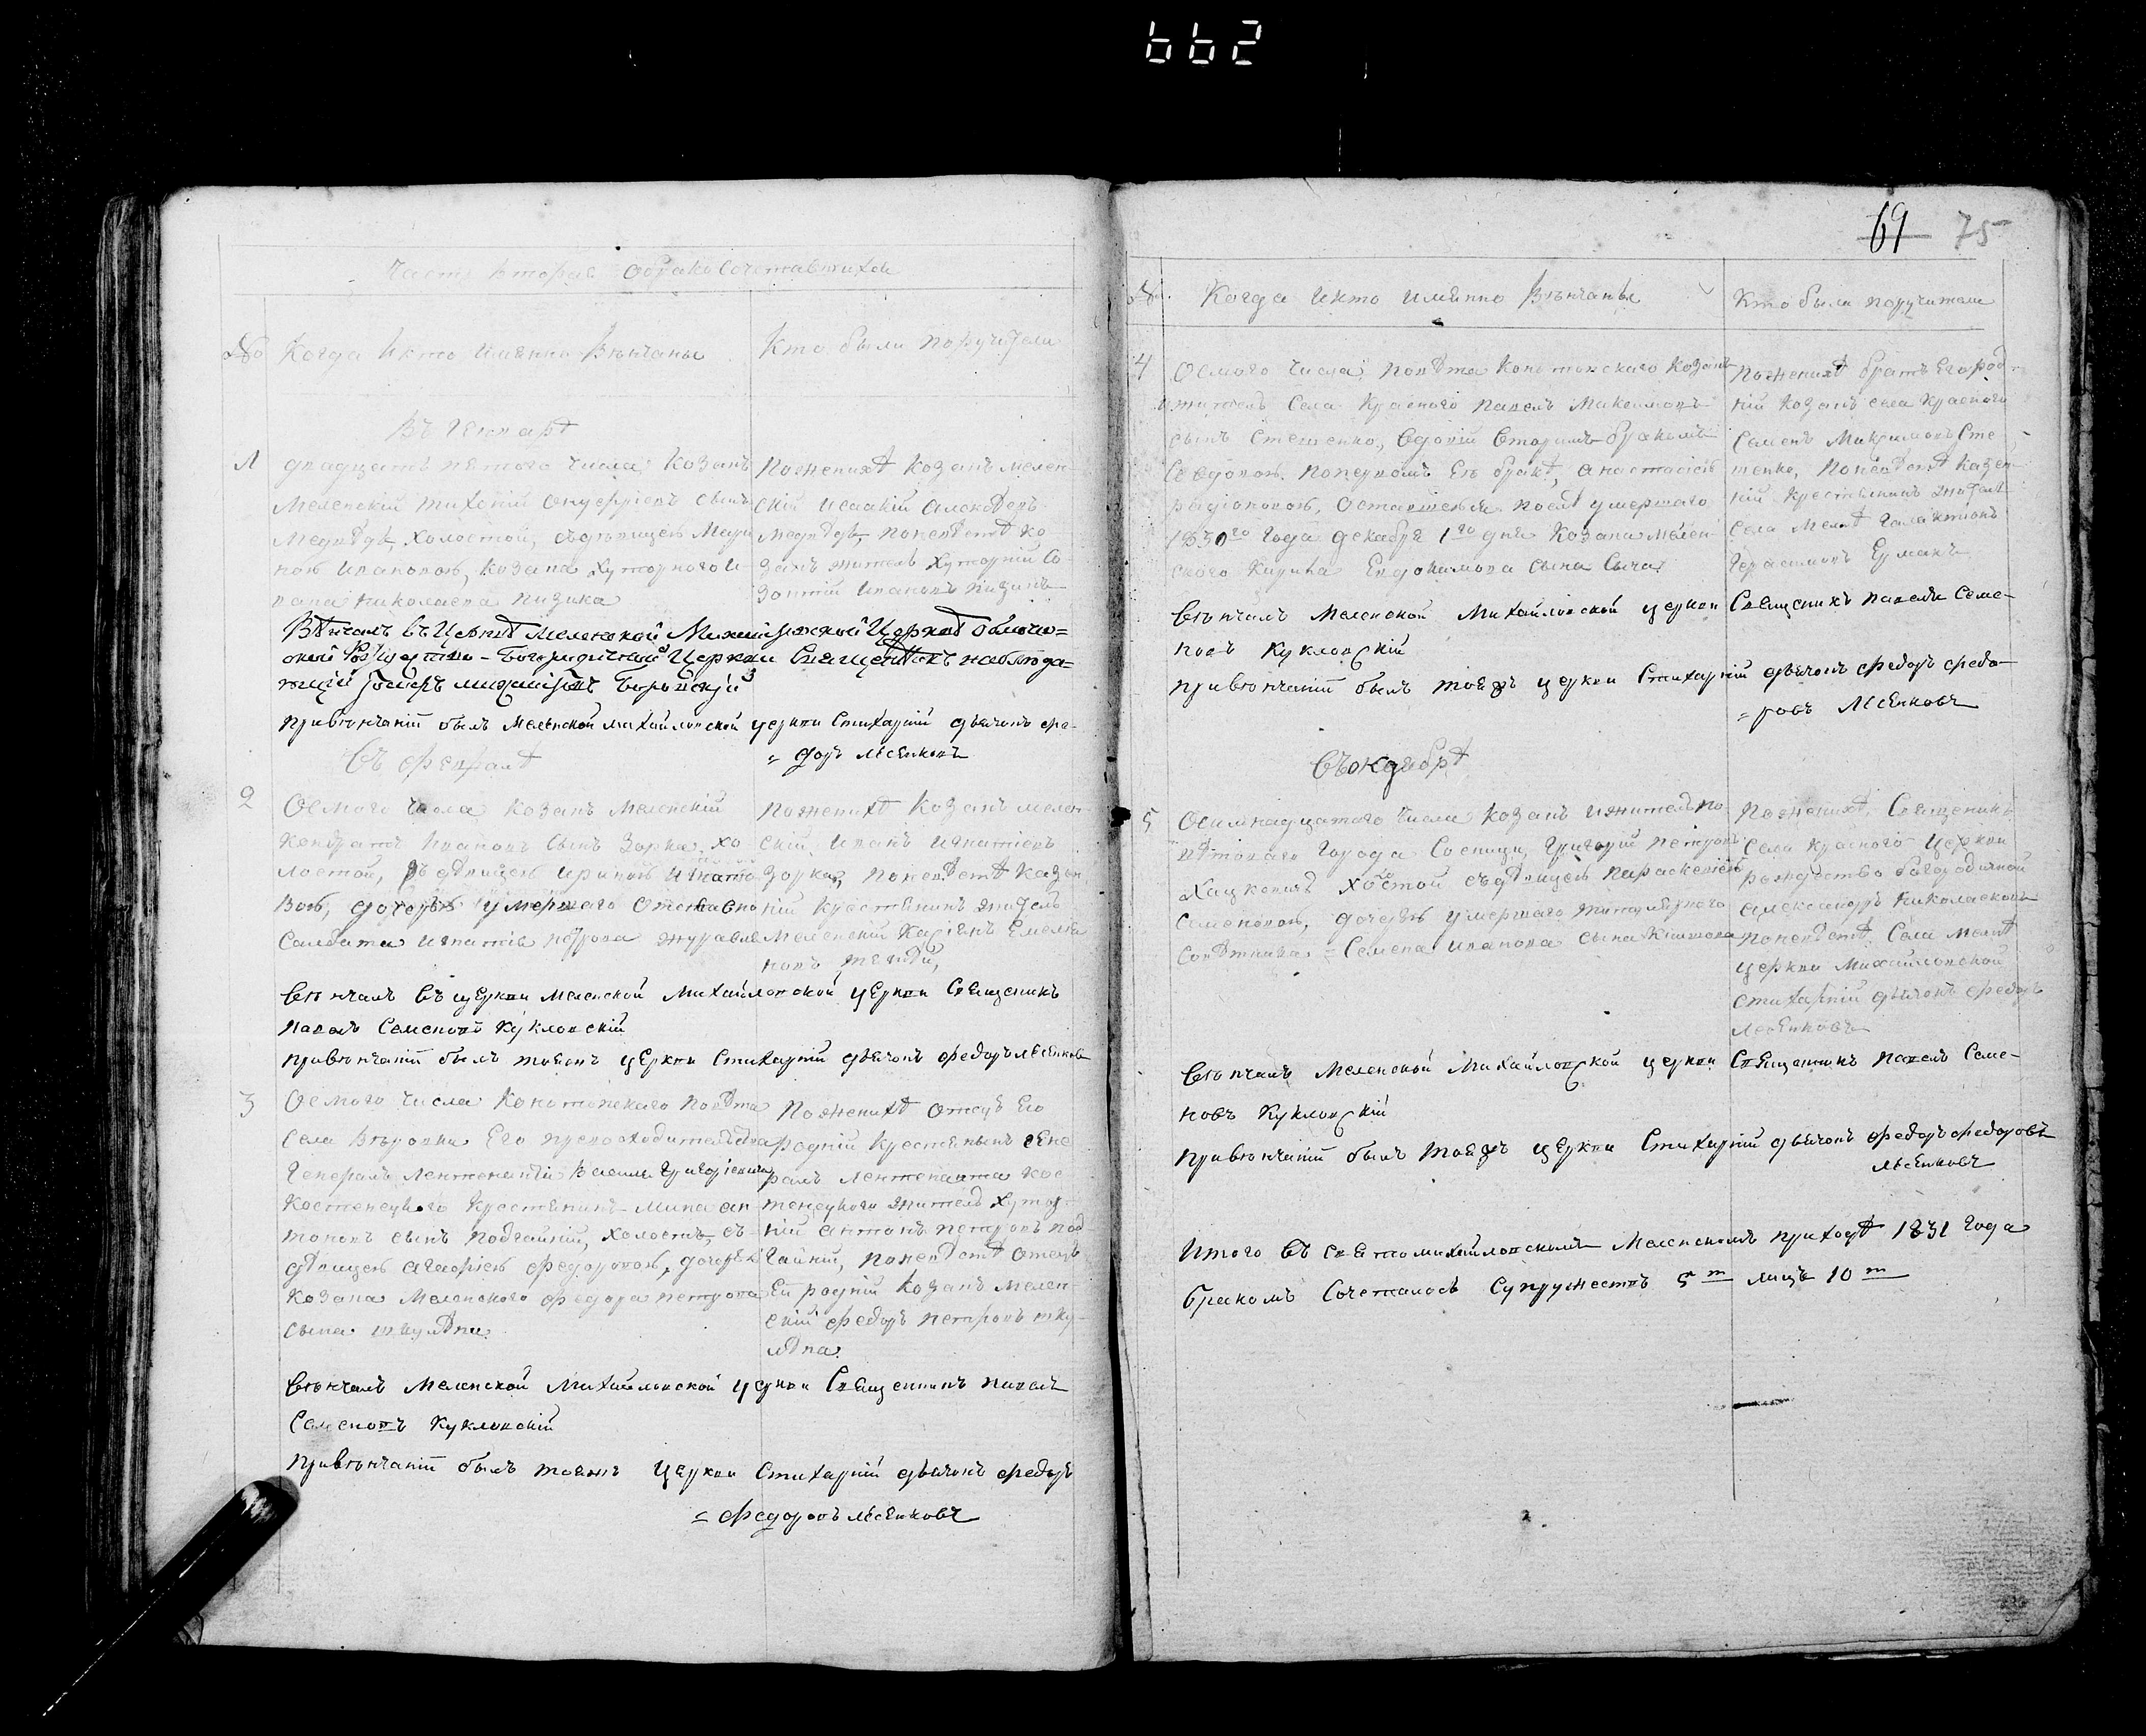 662
Часть вторая о бракосочетавшихся
№ Когда и кто именно Венчаны
Кто были поручители
Въ Генварѣ
1
двадцать пятого числа козакъ
Меленскій Тихоній Онуфріевъ сынъ
Медвѣдь, холостой, съ дѣвицею Мари
ною Ивановою, козака хуторного И-
вана Николаева
По женихѣ козакъ мелен-
скій Исаакій Алексѣевъ
медвѣдь, по невѣстѣ ко
закъ житель хуторній Со-
зонтій Ивановъ
Вѣнчалъ въ Церквѣ Меленской Михайловской Церквѣ
Рождество-Богородичной Церкви Священникъ наблюда-
тель
при вѣнчаніи былъ Меленской михайловской церкви Стихарній дьячокъ фе-
= доръ лѣсенковъ
Въ февралѣ
2
Осмого числа козакъ Меленскій
Кондратъ Ивановъ сынъ Зорка, хо
лостой, съ дѣвицею Ириною Игнато
вою, дочерью умершаго отставно
Солдата Игнатія Петрова журавля
По женихѣ козакъ мелен-
скій Иванъ Игнатіевъ
зорка, по невѣстѣ казен
ній крестьянинъ житель
Меленскій Емелья
новъ
Вѣнчалъ въ церкви меленской Михайловской церкви Священикъ
павелъ Семеновъ Кукловскій
при вѣнчаніи былъ тоеяжъ церкви Стихарній дьячокъ федоръ лѣсенковъ
3
Осмого числа Конотопскаго повѣта
села Вѣровки Его превосходительства
Генералъ Лентенантій Василія Григоріевича
Костенецкого крестьянинъ Мина ан
тоновъ сынъ подгайній, холостъ, съ
дѣвицею Агафіею Федоровою, дочерью
козака Меленского федора петрова
сына шкулѣпа
По женихѣ отецъ Его
родній крестьянинъ Гене
ралъ Лентенанта Кос
тенецкого житель хутор
ній антонъ петровъ под-
гайній, по невѣстѣ отецъ
Ей родній козакъ мелен-
скій федоръ петровъ шку-
лѣпа
Вѣнчалъ Меленской Михайловской церкви Священникъ павелъ
Семеновъ Кукловскій
при вѣнчаніи былъ тоежъ церкви Стихарній дьячокъ федоръ
= федоровъ лѣсенковъ
69 75
№. Когда и кто именно Вѣнчаны
Кто были поручители
4
Осмого числа повѣта Конотопскаго козакъ
житель Села Красного павелъ Максимовъ
сынъ Стешенко, вдовій вторимъ бракомъ
Съ вдовою по первомъ Ея бракѣ, анастасіею
родіоновою, оставшеюся послѣ умершаго
1830го года декабря 1го дня козака мелен
ского Кирила Евдокимова сына Сыча
По женихѣ братъ Его род-
ній козакъ села Красного
Семенъ Максимовъ Сте
шенко, по невѣстѣ казен-
ній крестьянинъ житель
села Мелнѣ Галактіонъ
Герасимовъ Ермакъ
Вѣнчалъ Меленской Михайловской церкви Священикъ павелъ Семе-
новъ Кукловскій
при вѣнчаніи былъ тоежъ церкви Стихарній дьячокъ федоръ федо-
= ровъ Лѣсенковъ
Въ октябрѣ
5
Осимнадцатого числа козакъ и житель по
вѣтоваго города Сосници, Григорій петровъ
Хацкевичъ холостой съ дѣвицею параскевіею
Семеновою, дочерью умершаго титулярного
Совѣтника = Семена Иванова сына
По женихѣ, Священикъ
Села Красного церкви
рождество богородичной
александръ николаевъ
по невѣстѣ Села Мелнѣ
церкви Михайловской
стихарній дьячокъ федоръ
лѣсенковъ
Вѣнчалъ Меленской Михайловской церкви Священникъ павелъ Семе-
новъ Кукловскій
при вѣнчаніи былъ тоежъ церкви Стихарній дьячокъ федоръ федоровъ
лѣсенковъ
Итого въ свято михайловскомъ Меленскомъ приходѣ 1831 года
бракомъ Сочеталось Супружествъ 5т лицъ 10т